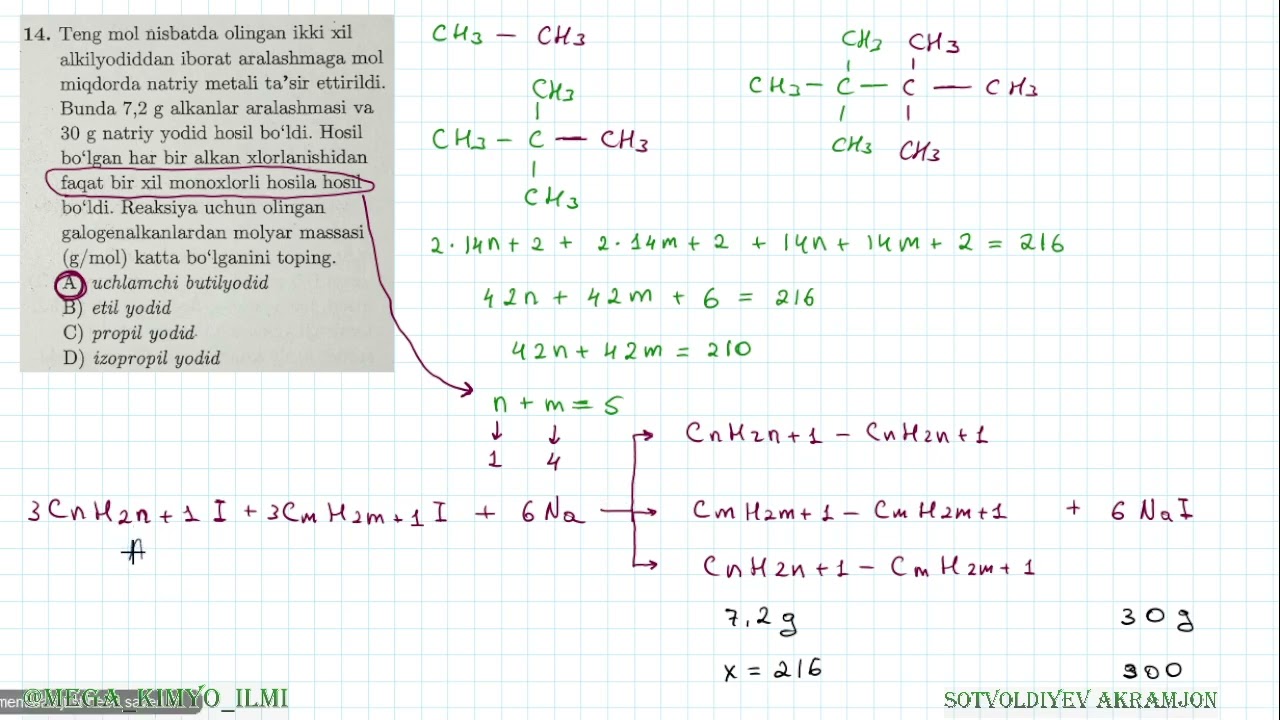 14. Teng mol nisbatda olingan ikki xil
alkilyodiddan iborat aralashmaga mol
miqdorda natriy metali ta'sir ettirildi.
Bunda 7,2 g alkanlar aralashmasi va
30 g natriy yodid hosil bo'ldi. Hosil
bo'lgan har bir alkan xlorlanishidan
faqat bir xil monoxlorli hosila hosil
bo'ldi. Reaksiya uchun olingan
galogenalkanlardan molyar massasi
(g/mol) katta bo'lganini toping.
A) uchlamchi butilyodid
B) etil yodid
C) propil yodid
D) izopropil yodid
CH3 - CH3
CH3
CH3 - C - CH3
CH3
CH3 CH3
CH3 - C - C - CH3
CH3 CH3
2·14n + 2 + 2·14m + 2 + 14n + 14m + 2 = 216
42n + 42m + 6 = 216
42n + 42m = 210
n + m = 5
↓ ↓
1 4
CnH2n+1 - CnH2n+1
3CnH2n+1 I + 3CmH2m+1 I + 6Na → CmH2m+1 - CmH2m+1 + 6NaI
CnH2n+1 - CmH2m+1
7,2 g 30 g
x = 216 900
@MEGA_KIMYO_ILMI
SOTVOLDIYEV AKRAMJON